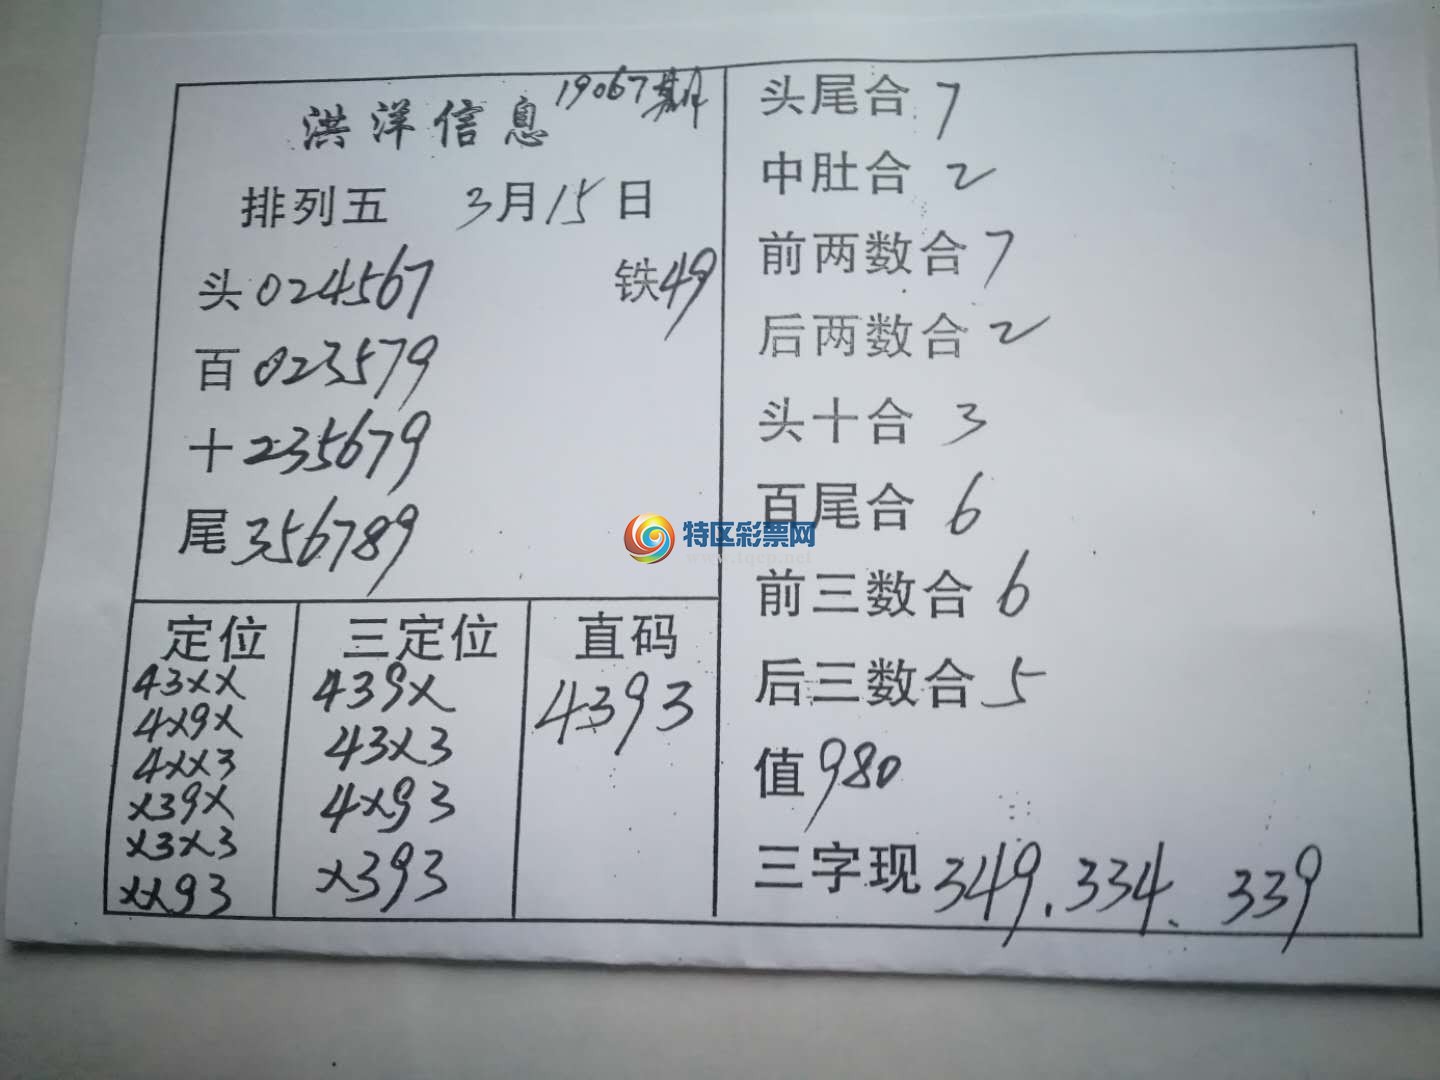 洪洋信息 19067期
排列五 3月15日
头024567 铁49
百023579
十235679
尾356789
定位
43xx
4x9x
4xx3
x39x
x3x3
xx93
三定位
439x
43x3
4x93
x393
直码
4393
头尾合 7
中肚合 2
前两数合 7
后两数合 2
头十合 3
百尾合 6
前三数合 6
后三数合 5
值980
三字现 349.334.339
特区彩票网